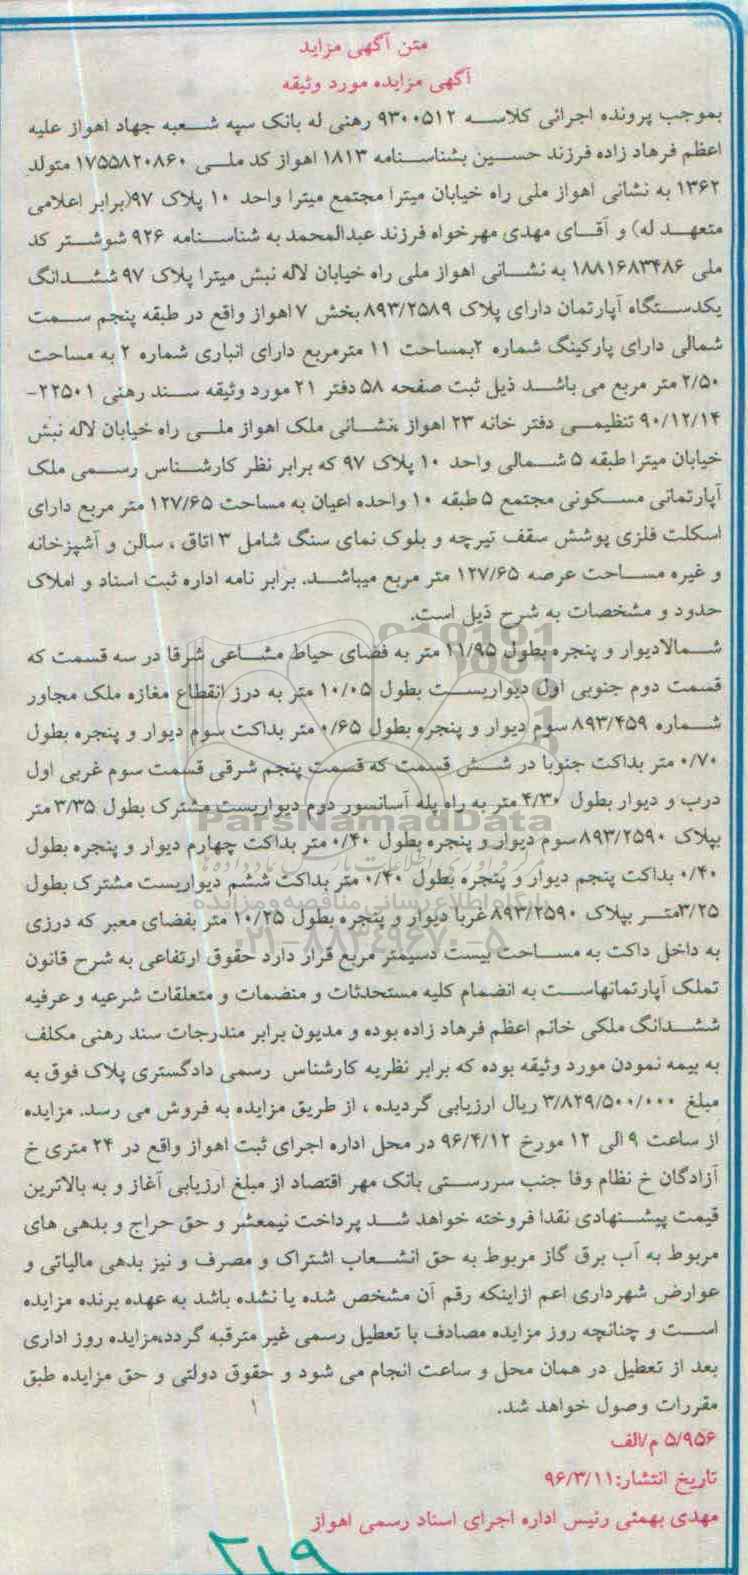 متن آگهی مزاید
آگهی مزایده مورد وثیقه
بموجب پرونده اجرائی کلاسه ۹۳۰۰۵۱۲ رهنی له بانک سپه شعبه جهاد اهواز علیه
اعظم فرهاد زاده فرزند حسین بشناسنامه ۱۸۱۳ اهواز کد ملی ۱۷۵۵۸۲۰۸۶۰ متولد
۱۳۶۲ به نشانی اهواز ملی راه خیابان میترا مجتمع میترا واحد ۱۰ پلاک ۹۷(برابر اعلامی
متعهد له) و آقای مهدی مهرخواه فرزند عبدالمحمد به شناسنامه ۹۲۶ شوشتر کد
ملی ۱۸۸۱۶۸۳۴۸۶ به نشانی اهواز ملی راه خیابان لاله نبش میترا پلاک ۹۷ ششدانگ
یکدستگاه آپارتمان دارای پلاک ۸۹۳/۲۵۸۹ بخش ۷ اهواز واقع در طبقه پنجم سمت
شمالی دارای پارکینگ شماره ۲بمساحت ۱۱ مترمربع دارای انباری شماره ۲ به مساحت
۲/۵۰ متر مربع می باشد ذیل ثبت صفحه ۵۸ دفتر ۲۱ مورد وثیقه سند رهنی ۲۲۵۰۱-
۹۰/۱۲/۱۴ تنظیمی دفتر خانه ۲۳ اهواز ،نشانی ملک اهواز ملی راه خیابان لاله نبش
خیابان میترا طبقه ۵ شمالی واحد ۱۰ پلاک ۹۷ که برابر نظر کارشناس رسمی ملک
آپارتمانی مسکونی مجتمع ۵ طبقه ۱۰ واحده اعیان به مساحت ۱۲۷/۶۵ متر مربع دارای
اسکلت فلزی پوشش سقف تیرچه و بلوک نمای سنگ شامل ۳ اتاق ، سالن و آشپزخانه
و غیره مساحت عرصه ۱۲۷/۶۵ متر مربع میباشد. برابر نامه اداره ثبت اسناد و املاک
حدود و مشخصات به شرح ذیل است.
شمالادیوار و پنجره بطول ۱۱/۹۵ متر به فضای حیاط مشاعی شرقا در سه قسمت که
قسمت دوم جنوبی اول دیواریست بطول ۱۰/۰۵ متر به درز انقطاع مغازه ملک مجاور
شماره ۸۹۳/۴۵۹ سوم دیوار و پنجره بطول ۰/۶۵ متر بداکت سوم دیوار و پنجره بطول
۰/۷۰ متر بداکت جنوبا در شش قسمت که قسمت پنجم شرقی قسمت سوم غربی اول
درب و دیوار بطول ۴/۳۰ متر به راه پله آسانسور دوم دیواریست مشترک بطول ۳/۳۵ متر
بپلاک ۸۹۳/۲۵۹۰سوم دیوار و پنجره بطول ۰/۴۰ متر بداکت چهارم دیوار و پنجره بطول
۰/۴۰ بداکت پنجم دیوار و پنجره بطول ۰/۴۰ متر بداکت ششم دیواریست مشترک بطول
۳/۲۵متر بپلاک ۸۹۳/۲۵۹۰ غربا دیوار و پنجره بطول ۱۰/۲۵ متر بفضای معبر که درزی
به داخل داکت به مساحت بیست دسیمتر مربع قرار دارد حقوق ارتفاعی به شرح قانون
تملک آپارتمانهاست به انضمام کلیه مستحدثات و منضمات و متعلقات شرعیه و عرفیه
ششدانگ ملکی خانم اعظم فرهاد زاده بوده و مدیون برابر مندرجات سند رهنی مکلف
به بیمه نمودن مورد وثیقه بوده که برابر نظریه کارشناس رسمی دادگستری پلاک فوق به
مبلغ ۳/۸۲۹/۵۰۰/۰۰۰ ریال ارزیابی گردیده ، از طریق مزایده به فروش می رسد. مزایده
از ساعت ۹ الی ۱۲ مورخ ۹۶/۴/۱۲ در محل اداره اجرای ثبت اهواز واقع در ۲۴ متری خ
آزادگان خ نظام وفا جنب سررستی بانک مهر اقتصاد از مبلغ ارزیابی آغاز و به بالاترین
قیمت پیشنهادی نقدا فروخته خواهد شد پرداخت نیمعشر و حق حراج و بدهی های
مربوط به آب برق گاز مربوط به حق انشعاب اشتراک و مصرف و نیز بدهی مالیاتی و
عوارض شهرداری اعم ازاینکه رقم آن مشخص شده یا نشده باشد به عهده برنده مزایده
است و چنانچه روز مزایده مصادف با تعطیل رسمی غیر مترقبه گردد،مزایده روز اداری
بعد از تعطیل در همان محل و ساعت انجام می شود و حقوق دولتی و حق مزایده طبق
مقررات وصول خواهد شد.
۵/۹۵۶ م/الف
تاریخ انتشار:۹۶/۳/۱۱
مهدی بهمئی رئیس اداره اجرای اسناد رسمی اهواز
۲۱۹
ParsNamadData
پایگاه اطلاع رسانی مناقصه و مزایده
۰۲۱-۸۸۳۴۹۶۷۰-۵